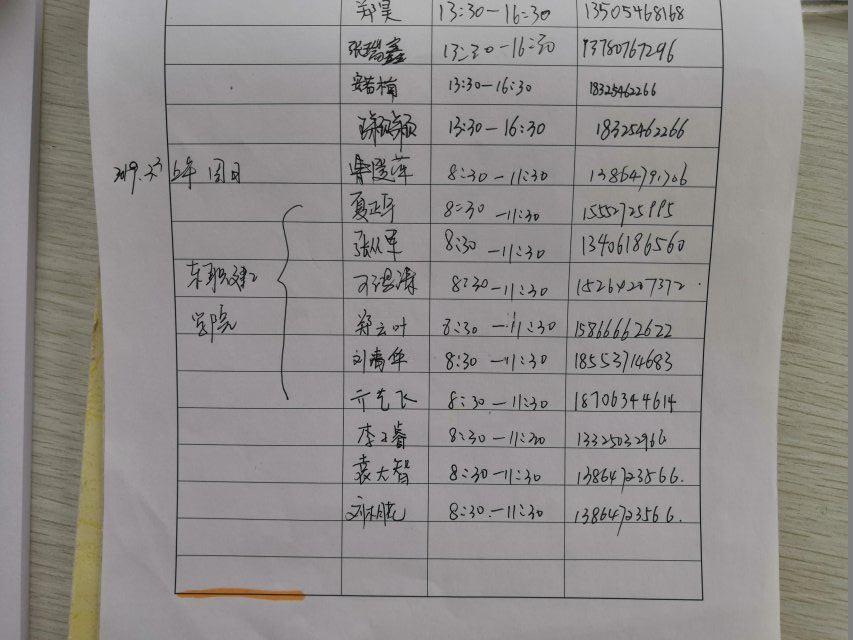 郑昊 13:30-16:30 13505468168
张瑞鑫 13:30-16:30 13780767296
安若楠 13:30-16:30 18325462266
13:30-16:30 18325462266
8:30-11:30
夏正宇 8:30-11:30
张从军 8:30-11:30 13406186560
东职 8:30-11:30 15264207372
学院 郑云叶 8:30-11:30 15866662622
刘春华 8:30-11:30 18553714683
8:30-11:30 18706344614
李 8:30-11:30 13325032966
袁大智 8:30-11:30 13864723566.
刘 8:30-11:30 13864723566.